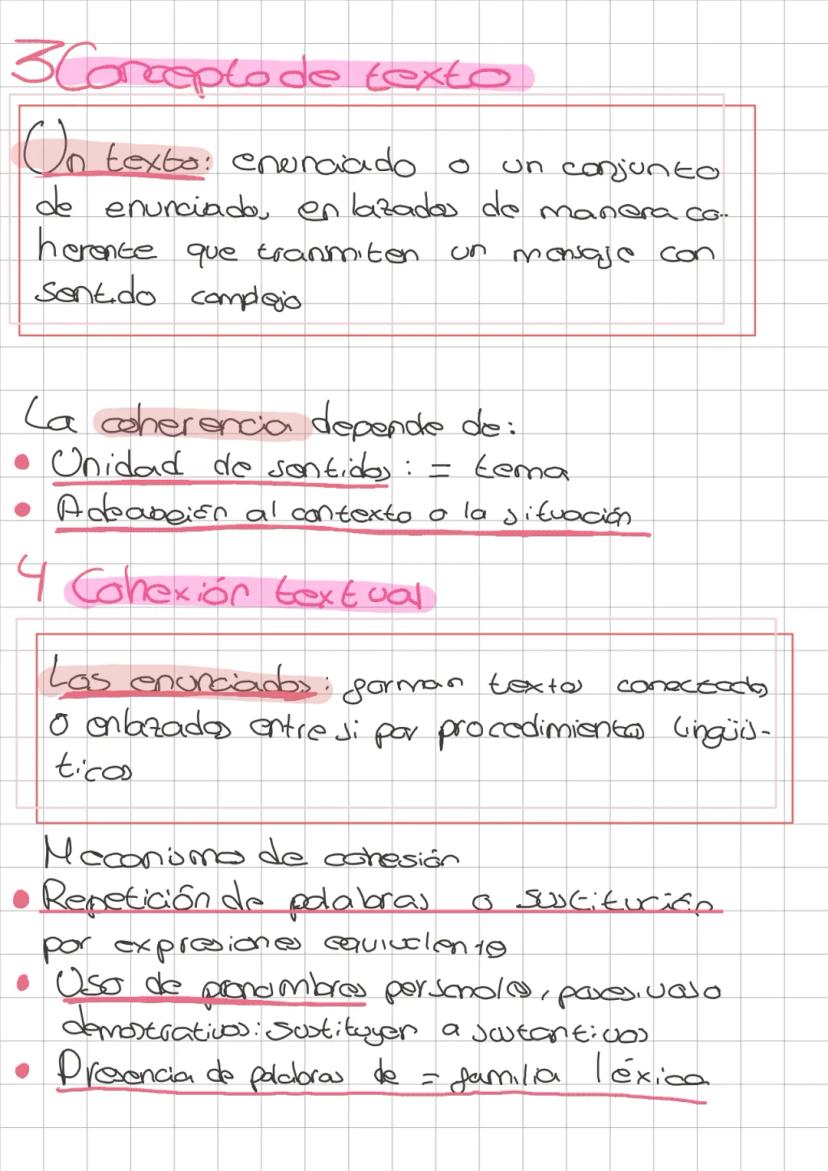 3 Concepto de texto
Un texto: enunciado o un conjunto
de enunciados enlazados de manera co-
herente que tranmiten un mensaje con
sentido complejo
La coherencia depende de:
Unidad de sentidos: = tema
Adecuación al contexto o la situación
4 Cohexión textual
Los enunciados: forman textos conectados
o enlazados entre si por procedimientos lingüís-
ticos
Mecanismo de cohesión
Repetición de palabras o sustitución
por expresiones equivalentes
Uso de pronombres personales, posesivos o
demostrativos: sustituyen a sustantivos
Presencia de palabras de = familia léxica